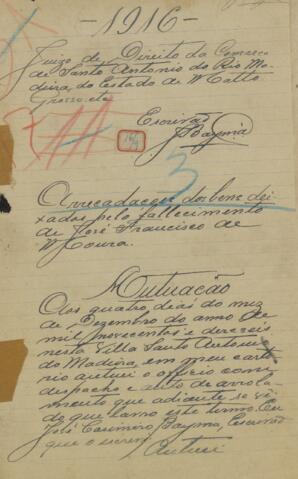 -1916-
Juizo de Direito da Comarca
de Santo Antonio do Rio Ma-
deira, do Estado de Matta
Grosso, etc
Escrivão
Bayma
Arrecadação dos bens dei-
xados pelo fallecimento
de José Francisco de
Moura.
Autuação
Aos quatro dias do mez
de Dezembro do anno de
mil novecentos e dezeseis
nesta Villa Santo Antonio
do Madeira, em meu carto-
rio autuei o officio com o
despacho e auto de arrola-
mento que adiante se vê
do que lavro este termo. Eu
José Casimiro Bayma, Escrivão
que o escrevi
Autuei